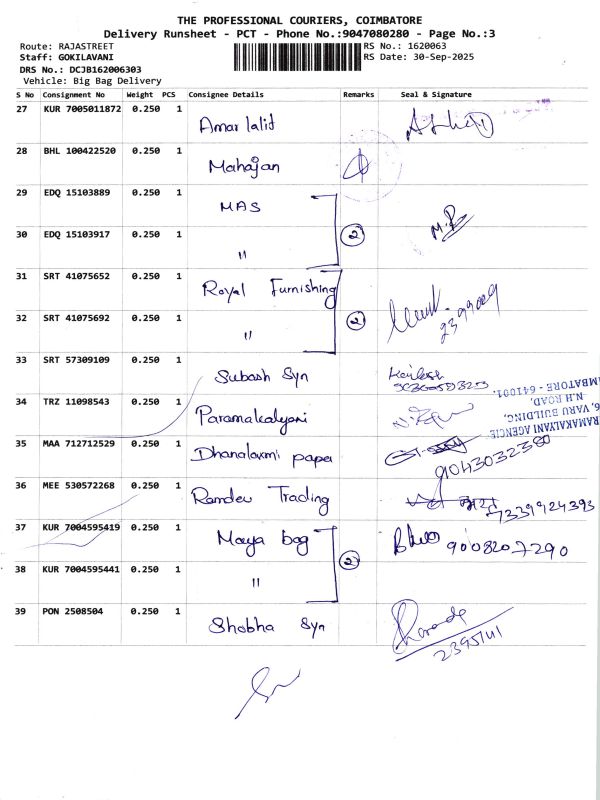 THE PROFESSIONAL COURIERS, COIMBATORE
Delivery Runsheet - PCT - Phone No.:9047080280 - Page No.:3
Route: RAJASTREET
RS No.: 1620063
Staff: GOKILAVANI
RS Date: 30-Sep-2025
DRS No.: DCJB162006303
Vehicle: Big Bag Delivery
S No Consignment No Weight PCS Consignee Details Remarks Seal & Signature
27 KUR 7005011872 0.250 1 Amar lalit
28 BHL 100422520 0.250 1 Mahajan
29 EDQ 15103889 0.250 1 MAS
30 EDQ 15103917 0.250 1 " 2
31 SRT 41075652 0.250 1 Royal Furnishing
32 SRT 41075692 0.250 1 " 2
33 SRT 57309109 0.250 1 Subash Syn
34 TRZ 11098543 0.250 1 Paramakalyani
RAMAKALVANI AGENCIE
VARU BUILDING,
N.H ROAD,
MBATORE - 641001.
35 MAA 712712529 0.250 1 Dhanalaxmi paper
9043032380
36 MEE 530572268 0.250 1 Ramdev Trading 7339924393
37 KUR 7004595419 0.250 1 Maya bag 9008207290
38 KUR 7004595441 0.250 1 " 2
39 PON 2508504 0.250 1 Shobha Syn
2395141